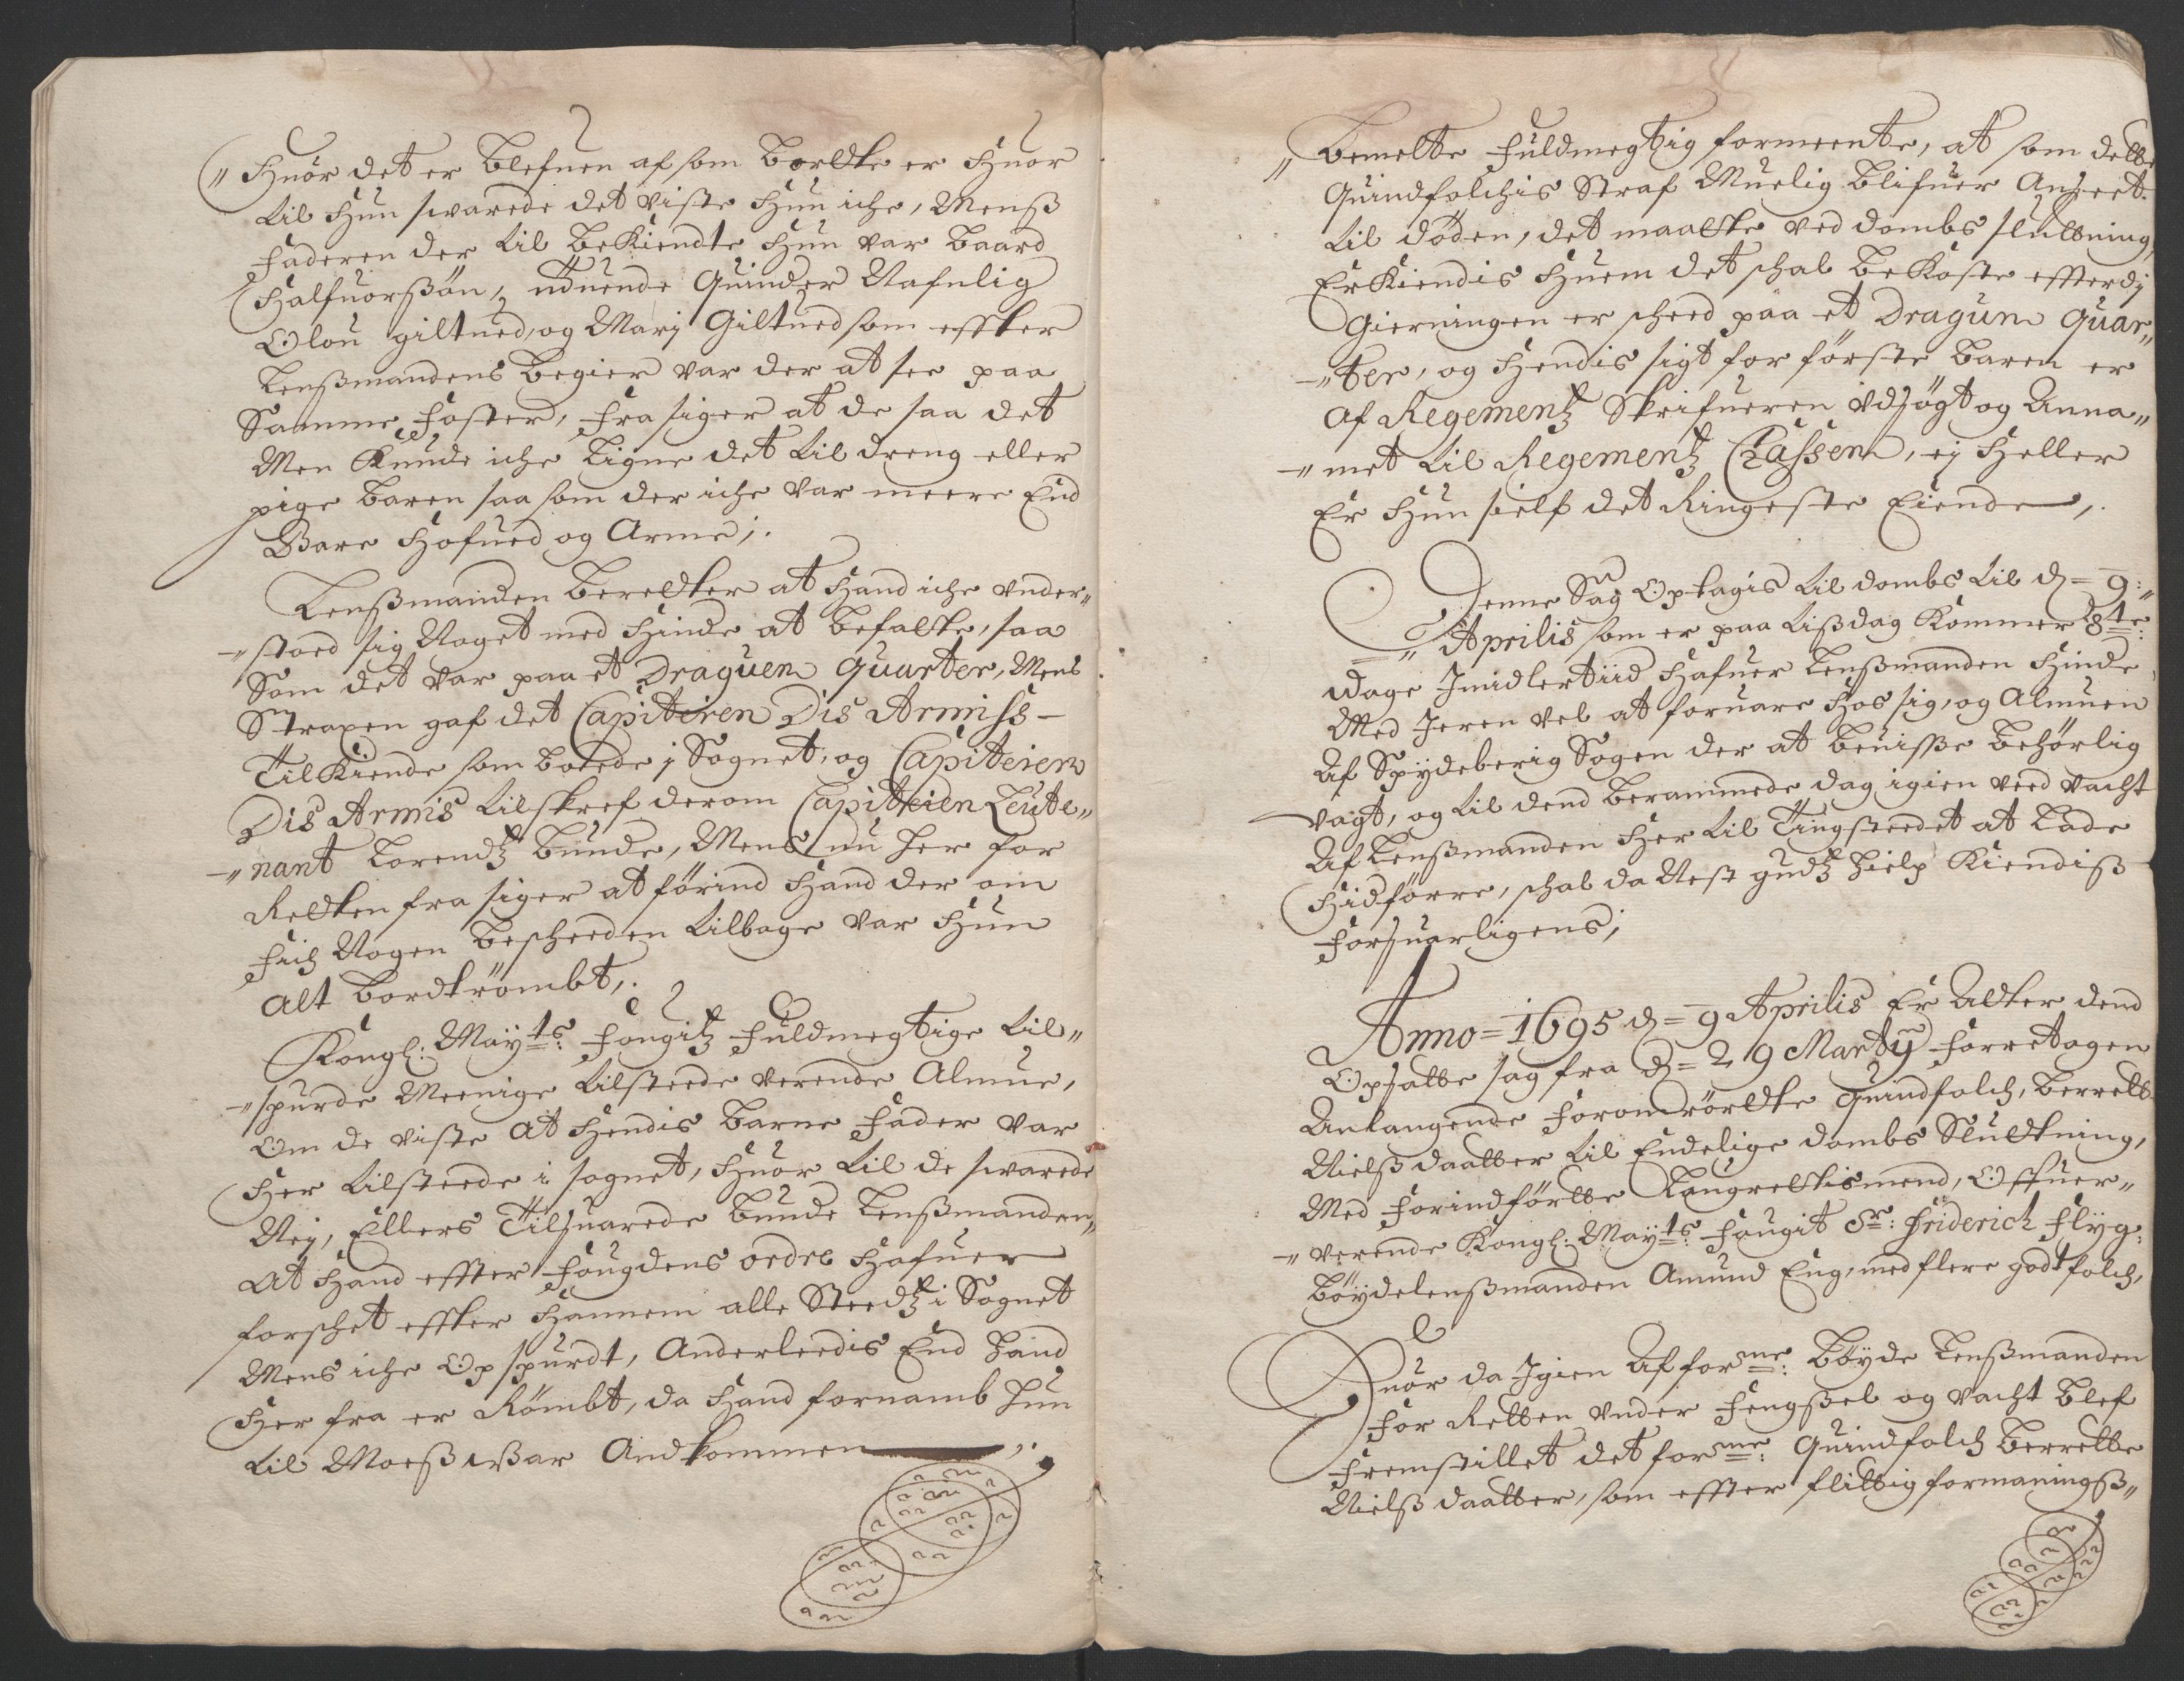 " Huor det er blefuen af som bortte er Huor
til Hun svarede det viste Hun iche, Menß
Faderen der til bekiendte Hun var Baard
Halfuorßøn, Quinder Nafnlig
Olou giltued, og Marj Giltued som effter
Lenßmandens begier var der at see paa
Samme Foster, fra siger at de saa det
Men Kunde iche ligne det til dreng eller
pige baren saa som der iche var meere End
Bare Hofued og Arme;.
Lenßmanden beretter at Hand iche under"
-"stoed sig Noget med Hinde at befatte, saa
Som det var paa et Draguen Quarter, Mens
Straxen gaf det Capiteiren Dis Armiss-
Tilkiende som boede j Sognet, og Capiteien
Dis Armis tilskref derom Capiteien Leute"
-"nant Lorendtz Bunde, Mens nu her for
Retten fra siger at førind Hand der om
fich Nogen bescheeden tilbage var Hun
alt bordtrømbt,.
Kongl: Mayts: Fougitz Fuldmegtige til"
-"spurde Meenige tilsteede verende Almue,
Om de viste at Hendis Barne Fader var
Her tilsteede i sognet, Huor til de svarede
Nej, Ellers Tilsuarede Bunde Lenßmanden"
at Hand effter Fougdens ordre Hafuer
forschet effter Hannem alle Steedtz i Sognet
Mens iche Opspurdt, Anderleedis End Hand
Her fra er Rømbt, da Hand fornamb hun
til Moeß War Andkommen ,.
" Bemelte Fuldmegtig formeente, at som dette
Quindfolchis Straf Muelig blifuer Anseet
til døden, det maatte ved dombs sluttning,
Erkiendis Huem det schal bekoste effterdj
Gierningen er scheed paa et Dragun Quar"
-"ter, og Hendis sigt for første Baren er
af Regementz Skrifueren Udsøgt og Anna"
-"met til Regementz Chassen, ej Heller
Er Hun sielf det Ringeste Eiende,.
Denne Sag Optagis til dombs til d= 9:"
"Aprilis som er paa tißdag Kommer 8te:
dage Imidlertiid Hafuer Lenßmanden Hinde
Med Jeren vel at foruare Hos sig, og Almuen
Af Spÿdeberig Sogen der at beuisse behørlig
Vagt, og til dend berammede dag igien veed vacht
Af Lenßmanden Her til Tingsteedet at lade
Hidførre, schal da Nest gudtz hielp Kiendiß
forsuarligens;
Anno=1695 d= 9 Aprilis Er Atter dend
Opsatte sag fra d= 29 Martÿ forretagen
Anlangende forom rørdte Quindfolch, Berrette
Nielß daatter til Endelige dombs Sluttning,
Med forindførtte Laugrettismend, Offuer"
-"verende Kongl: Mayts: Fougit Sr: Friderich Flÿg:
bøÿdelenßmanden Amund Eng, med flere godtfolch,
Huor da Igien Af forme: Bøÿde Lenßmanden
for Retten under Fengßel og vacht blef
fremstillet det forme: Quindfolch Berrette
Nielß daatter, som effter flittig formaningß"